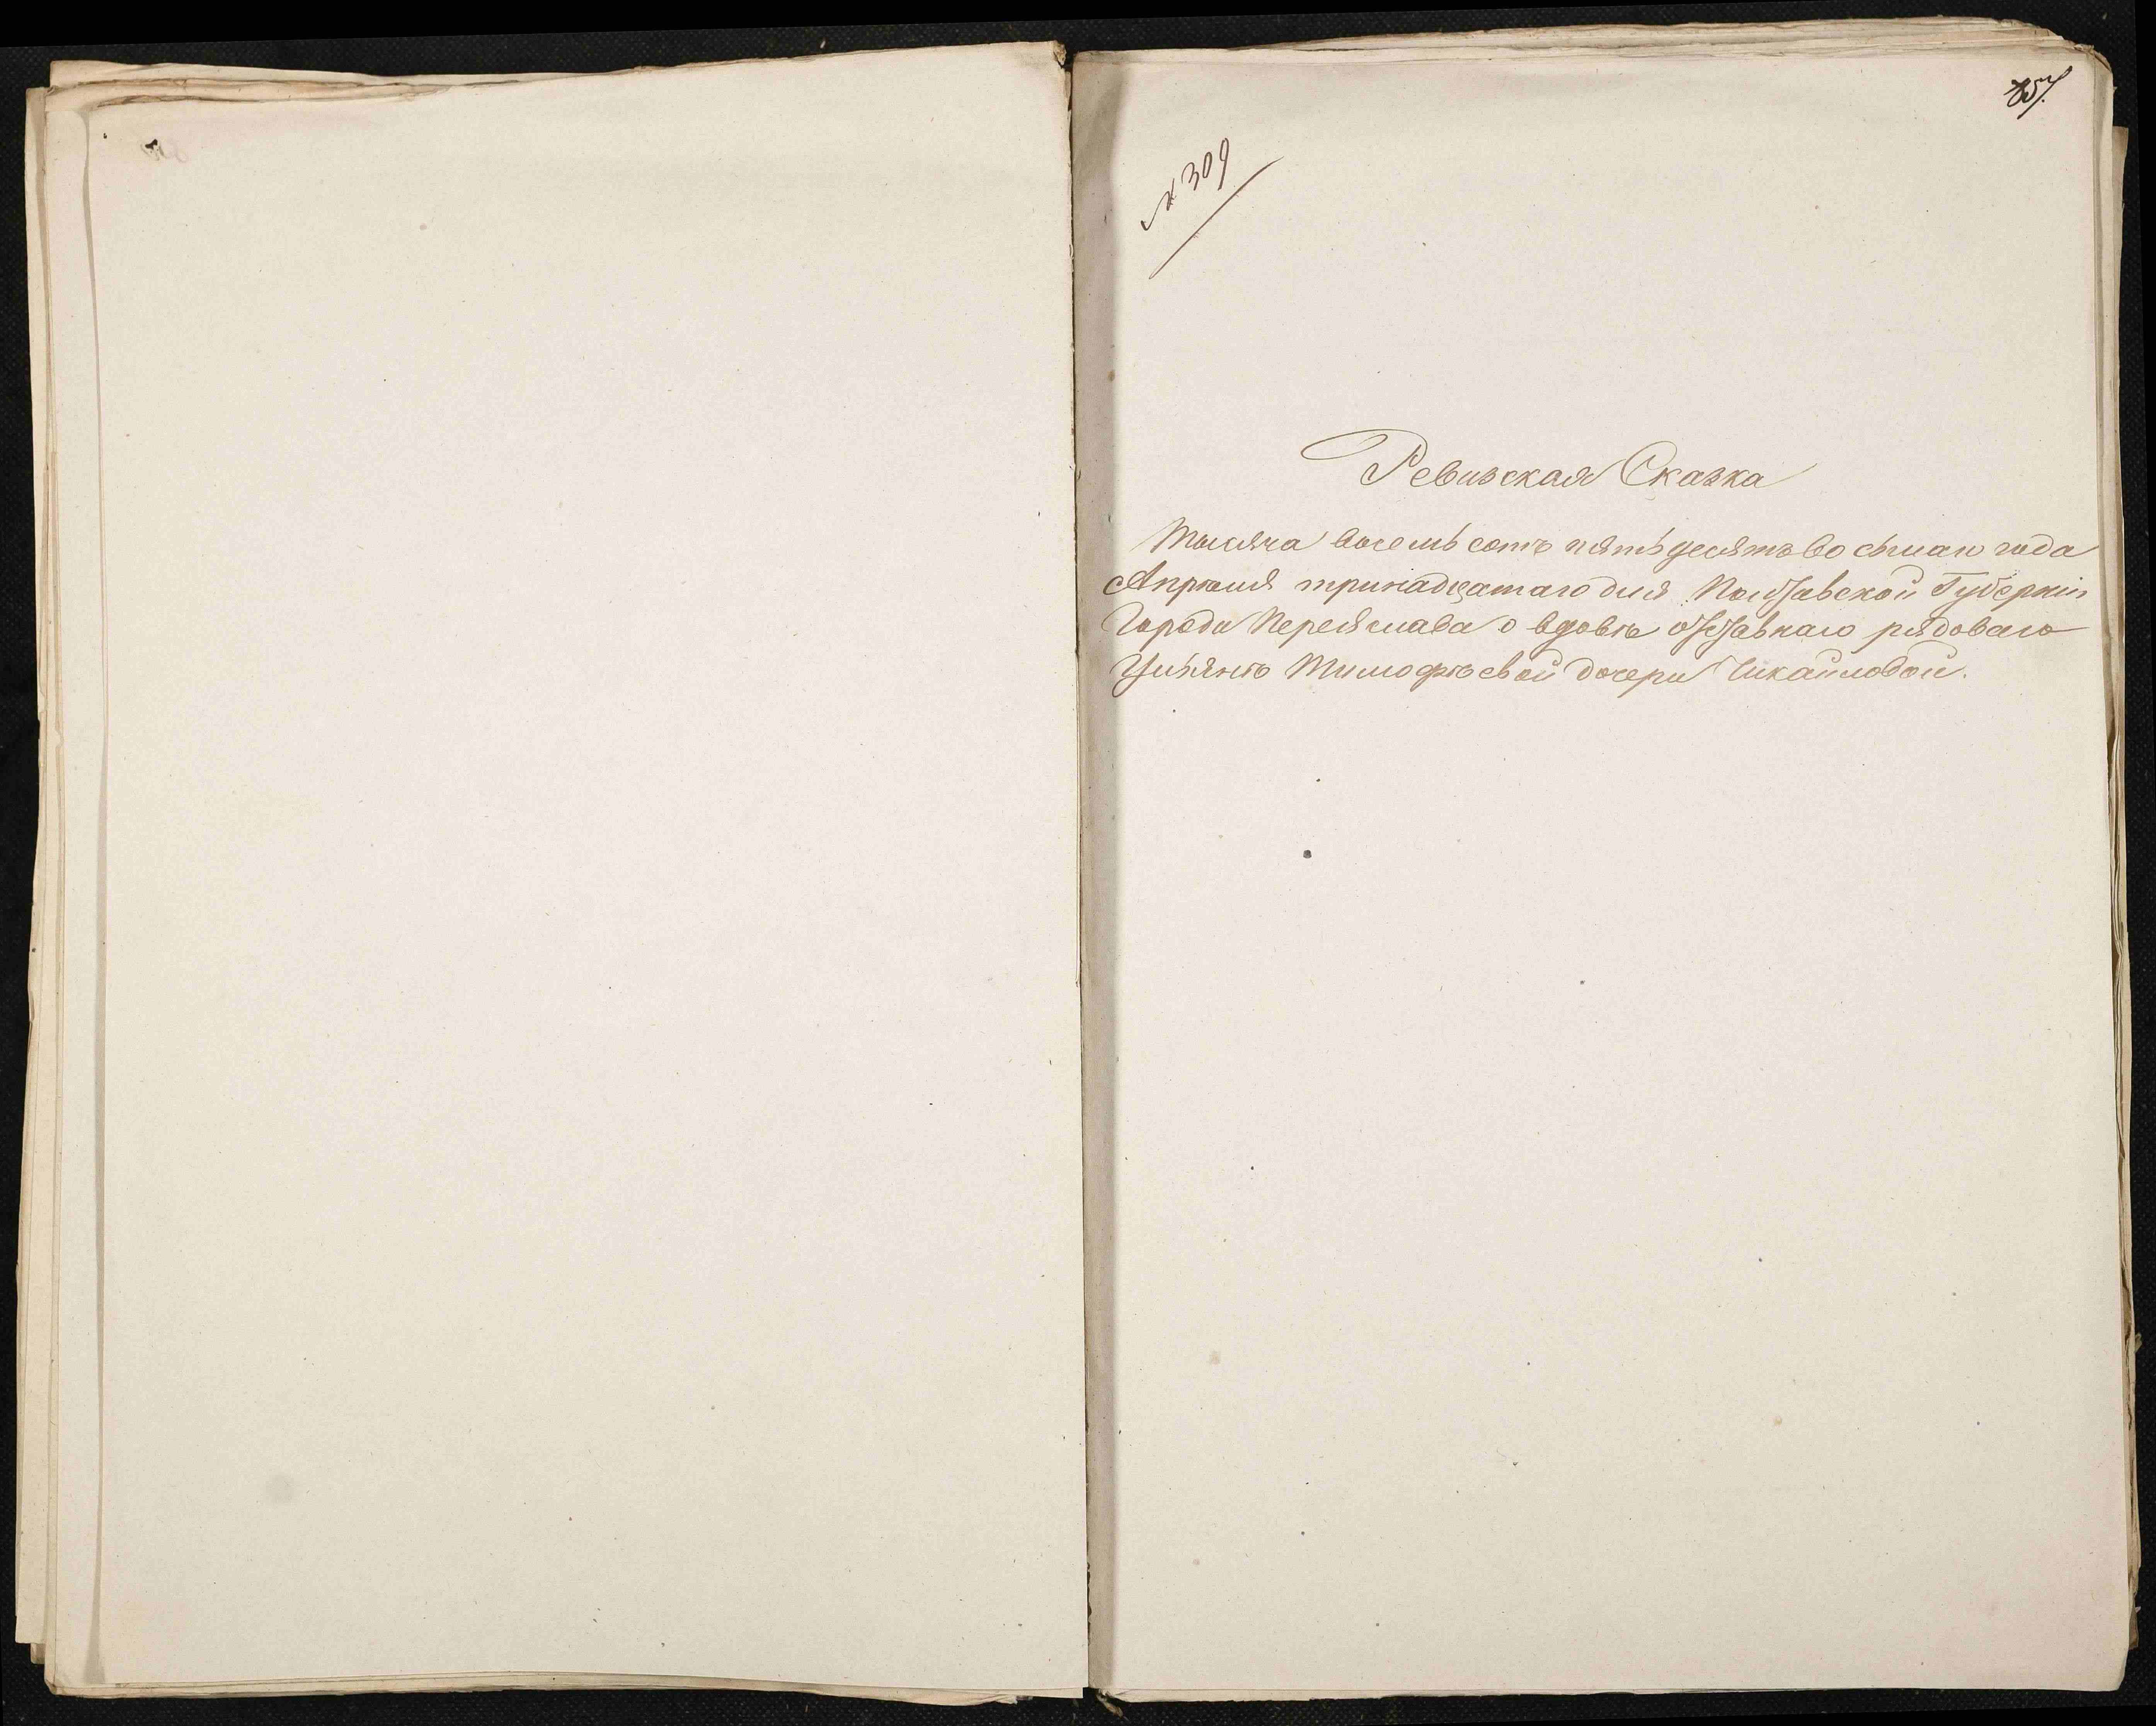 857.
№ 309
Ревизская Сказка
Тысяча восемь сотъ пятьдесятъ восьмаго года
Апрѣля тринадцатаго дня Полтавской Губерніи
Города Переяслава о вдовѣ отставнаго рядоваго
Тимофѣевой дочери